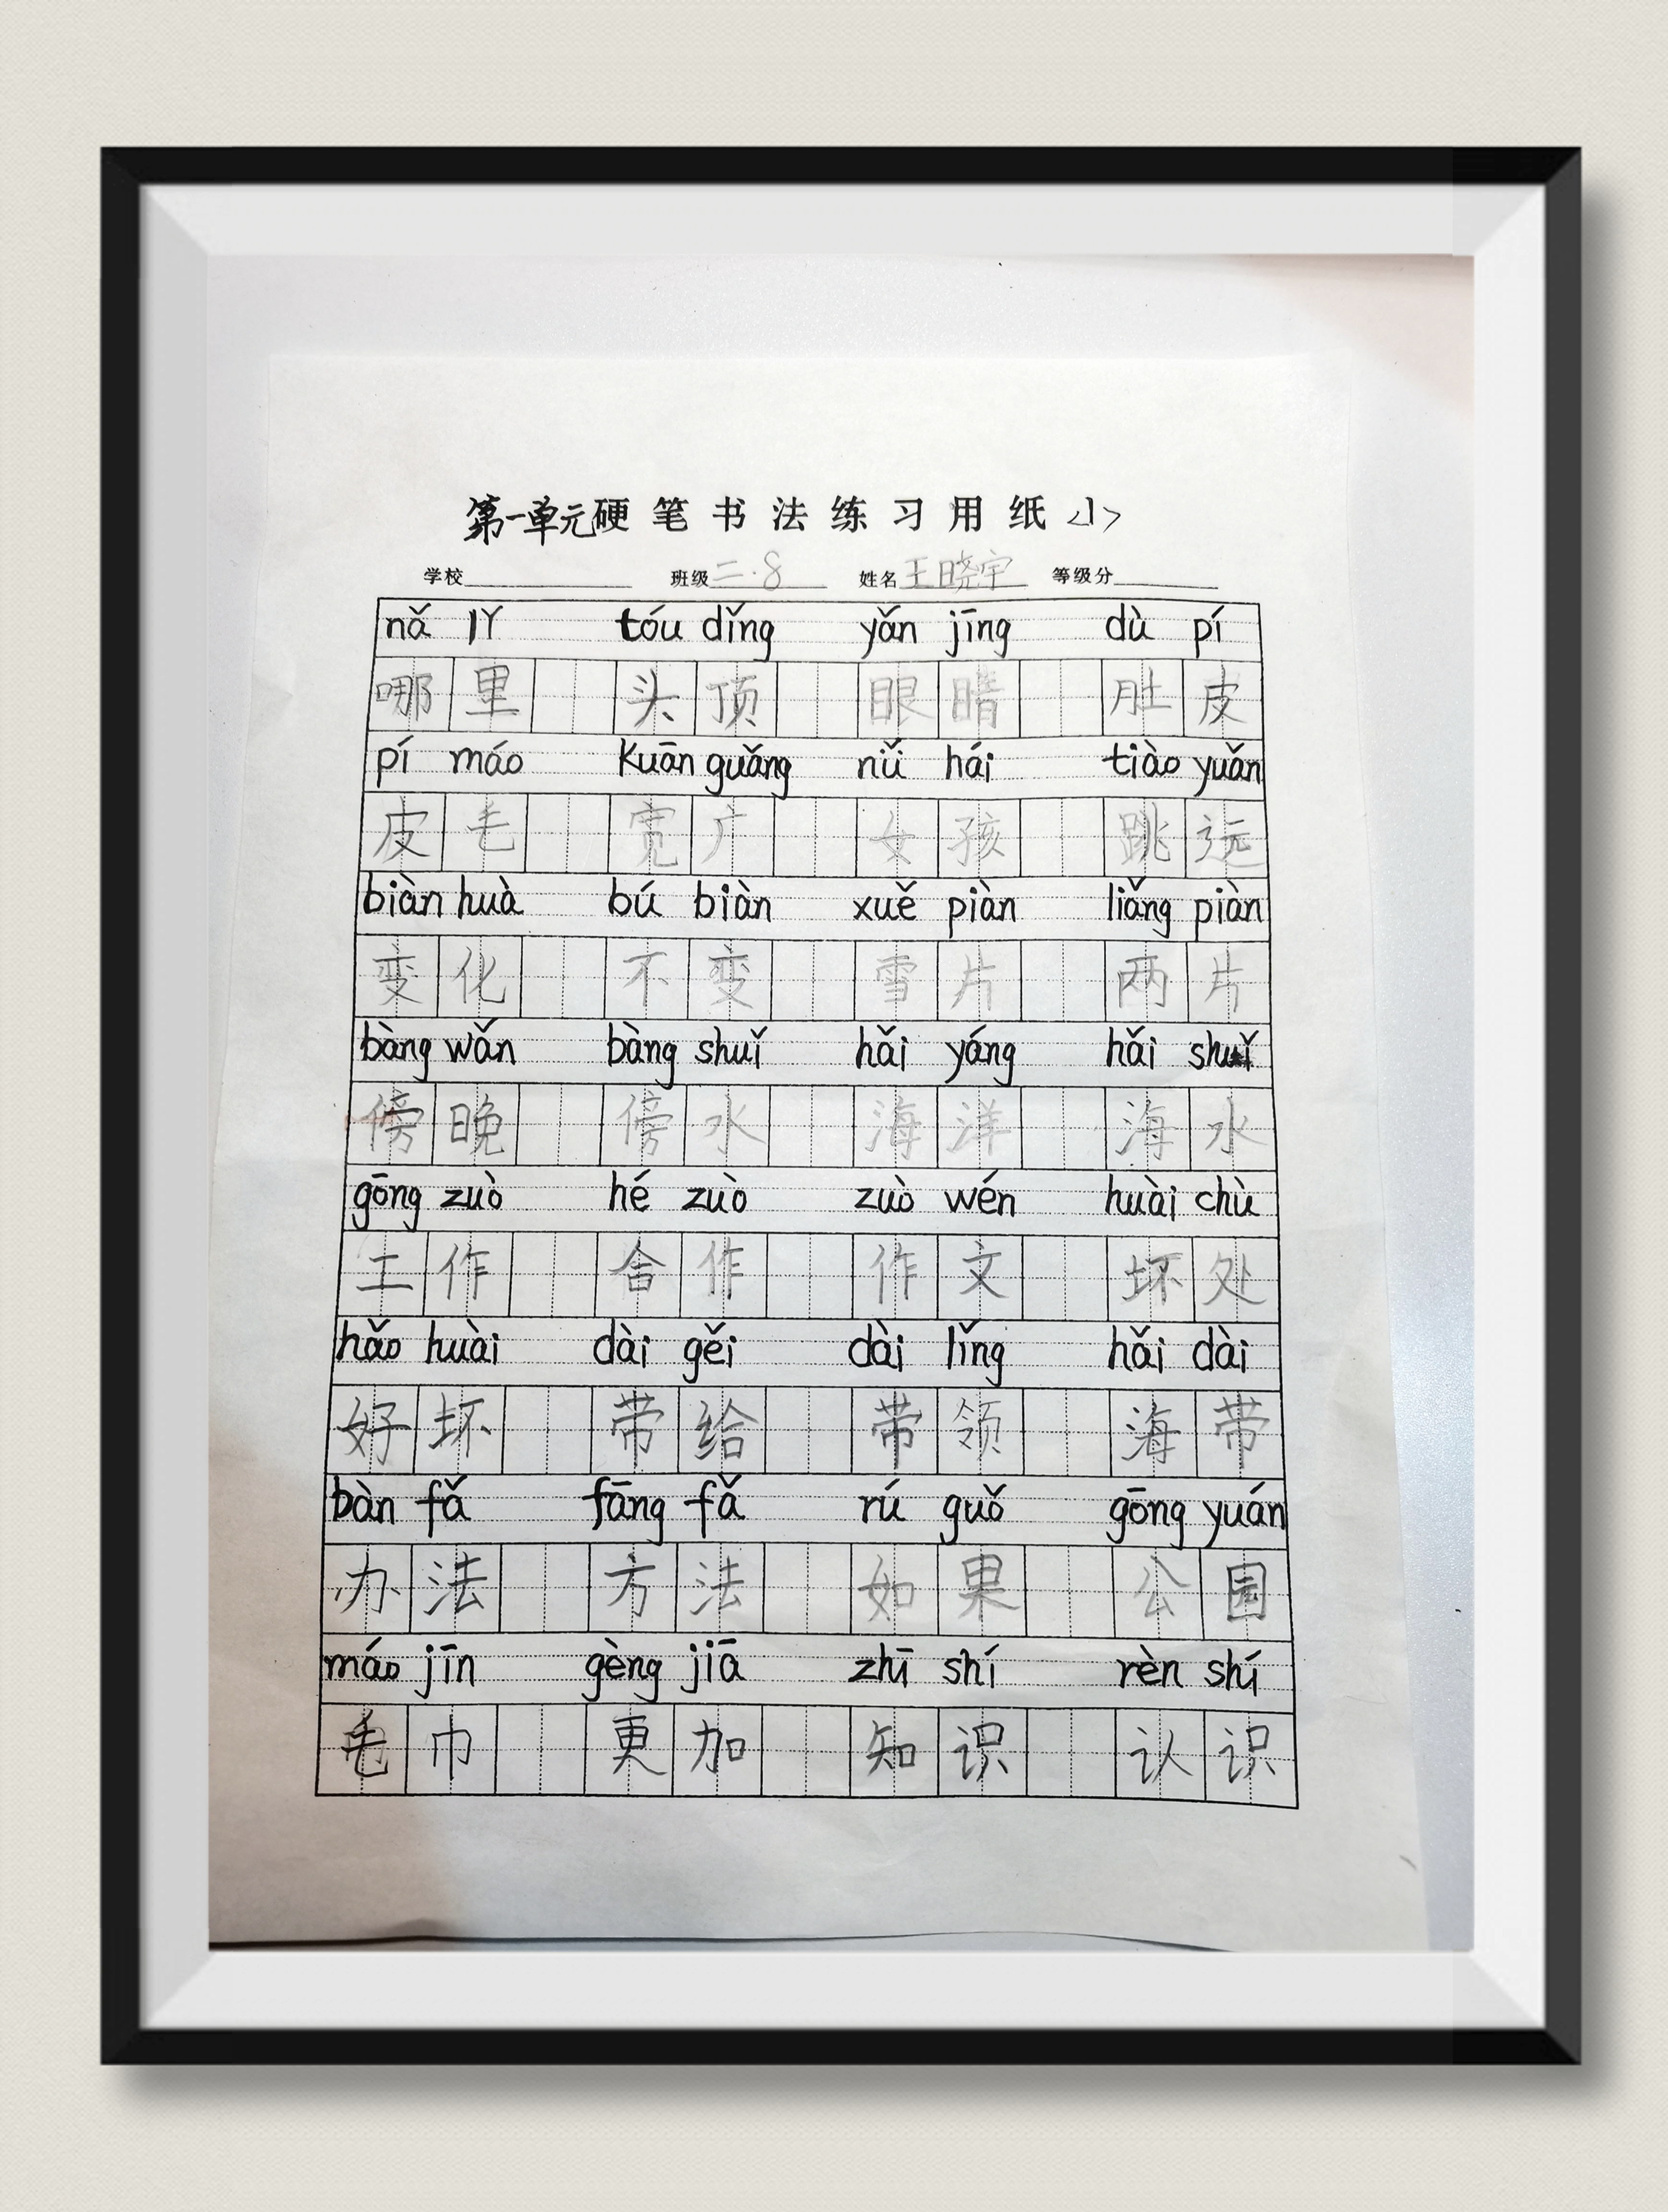 第一单元硬笔书法练习用纸<1>
学校 班级二.8 姓名王晓宇 等级分
nǎ lǐ tóu dǐng yǎn jīng dù pí
哪里 头顶 眼睛 肚皮
pí máo kuān guǎng nǚ hái tiào yuǎn
皮毛 宽广 女孩 跳远
biàn huà bú biàn xuě piàn liǎng piàn
变化 不变 雪片 两片
bàng wǎn bàng shuǐ hǎi yáng hǎi shuǐ
傍晚 傍水 海洋 海水
gōng zuò hé zuò zuò wén huài chù
工作 合作 作文 坏处
hǎo huài dài gěi dài lǐng hǎi dài
好坏 带给 带领 海带
bàn fǎ fāng fǎ rú guǒ gōng yuán
办法 方法 如果 公园
máo jīn gèng jiā zhī shí rèn shí
毛巾 更加 知识 认识